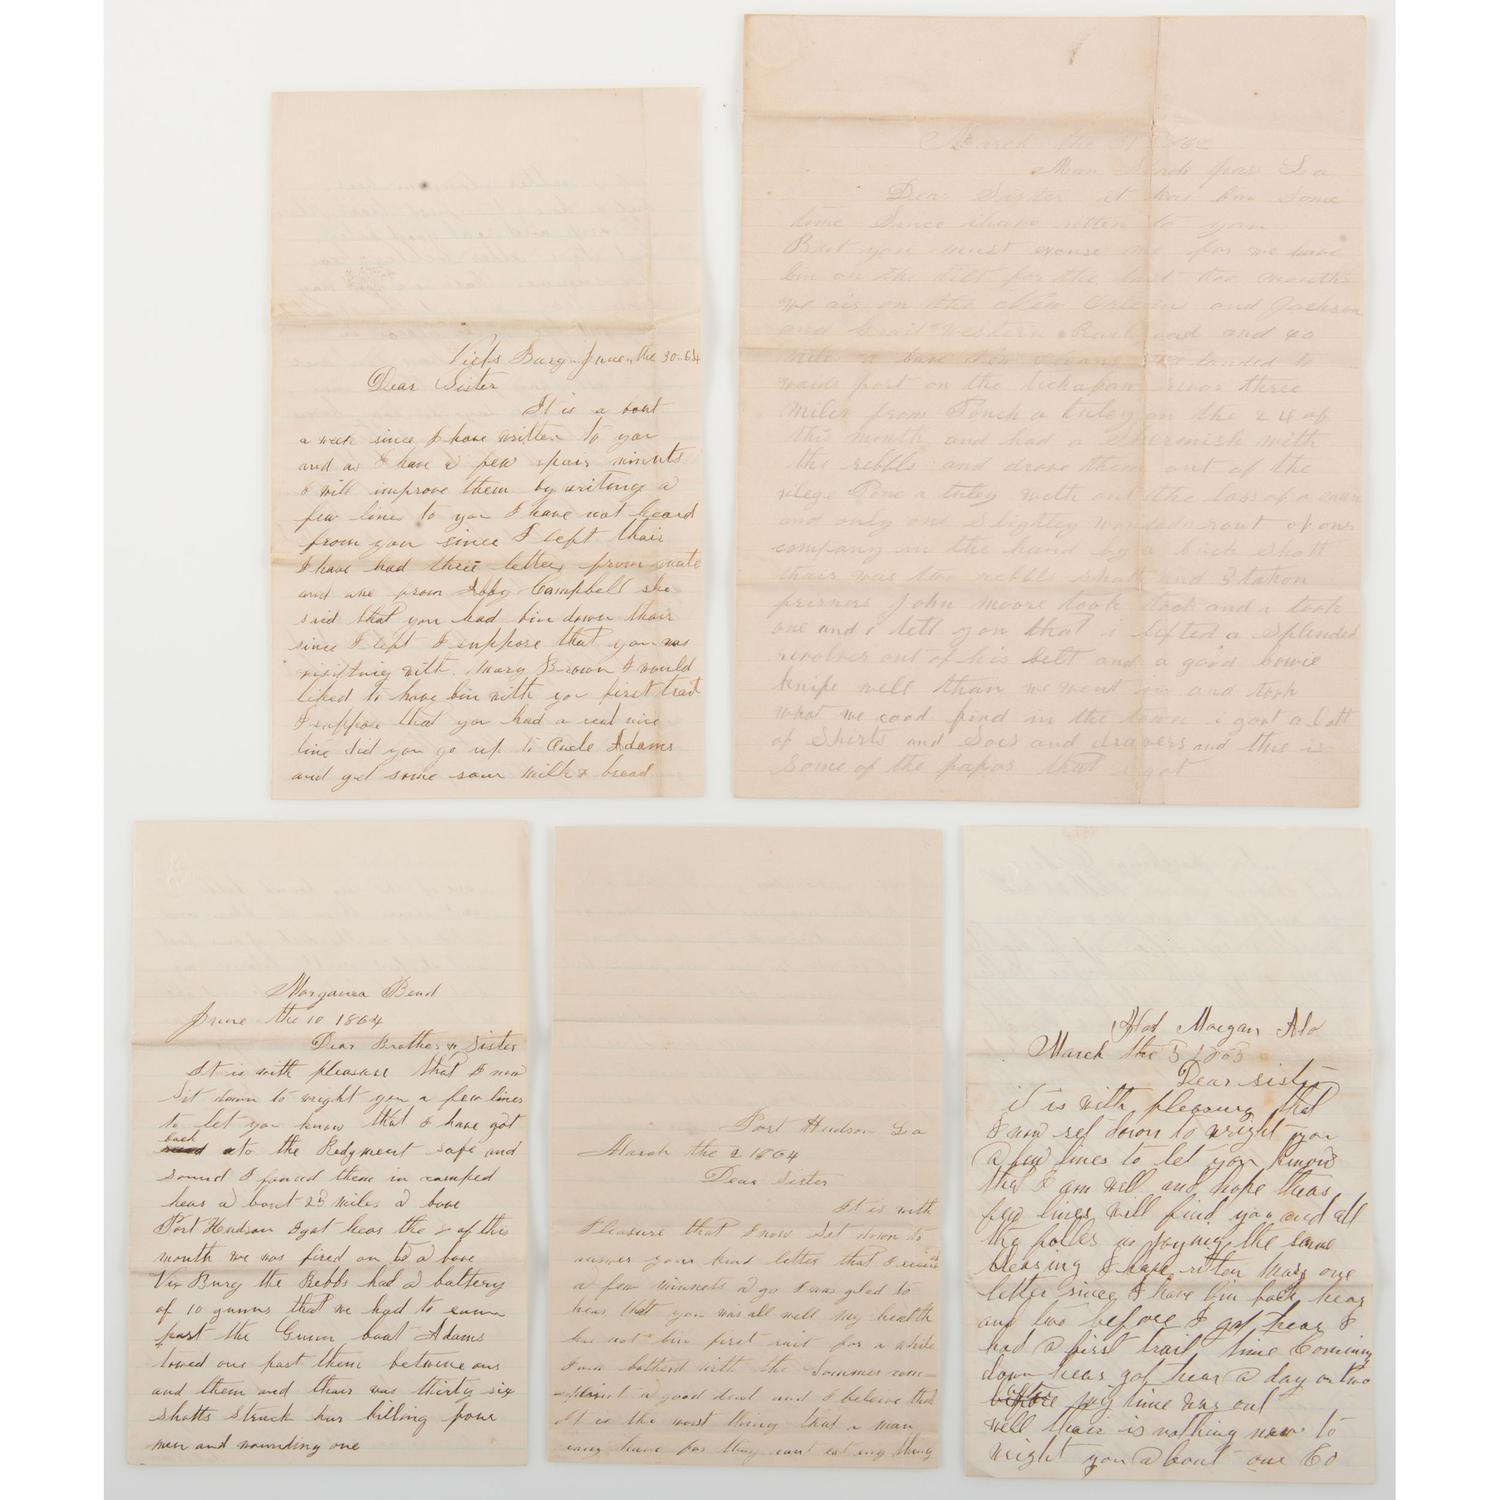 Vicks Burg June the 30-64
Dear Sister
It is a bout
a week since I have written to you
and as I have a few spair minuts
I will improve them by writing a
few lines to you I have not heard
from you since I left thair
I have had three letters from
and one from Abby Campbell she
said that you had bin down thair
since I left I suppose that you was
visitinig with Mary Brown I would
liked to have bin with you first trait
I suppose that you had a real nice
time did you go up to Uncle Adams
and get some sour milk & bread
March the
Man pass La
Dear Sister it has bin some
time Since i have ritten to you
But you must excuse me for we have
bin on the for the last too months
we air on the New Orleans and Jackson
and Western Railroad and 40
miles a bove landed to
wards port on the tichapaw rivor three
Miles from Ponch a tuley on the 24 of
this month and had a with
the rebbls and drove them out of the
vilege Ponc a tuley with out the loss of a
and only one Slightley out of our
company in the hand by a buck Shott
thair was two rebbls and 3 taken
prisners John Moore took took and i took
one and i tell you that i lifted a Splended
revolver out of his belt and a good bowie
knife well than we went in and took
what we cood find in the town i goat a lott
of Shirts and Socs and dravers and this is
some of the papor that i got
Morganza Bend
June the 10 1864
Dear Brother & Sister
It is with pleasure that I now
Sit down to wright you a few lines
to let you know that I have got
back
to the Redgment safe and
sound I found them in camped
hear a bout 25 miles a bove
Port Hudson I got hear the 8 of this
month we was fired on to a bove
Vix Burg the Rebbs had a battery
of 10 gunns that we had to
past the Gunn boat Adams
towed our past them betwine our
and them and thair was thirty six
shotts struck hur killing four
men and wounding one
Port Hudson La
March the 2 1864
Dear Sister
It is with
Pleasure that I now Set down to
answer your kind letter that I
a few minnets a go I was glad to
hear that you was all well my health
has not bin first rait for a while
I am botherd with the Sommer com-
plaint a good deal and I believe that
It is the worst thing that a man
can have for thay cant eat eny thing
Fort Morgan Ala
March the 5 1865
Dear sister
it is with pleasure that
I now set down to wright you
a few lines to let you know
that I am well and hope theas
few lines will find you and all
the folks in joying the same
blessing I have ritten Mary one
letter since I have bin back hear
and two before I got hear I
had a first trait time Coming
down hear got hear a day or two
before my time was out
well thair is nothing new to
wright you a bout our Co